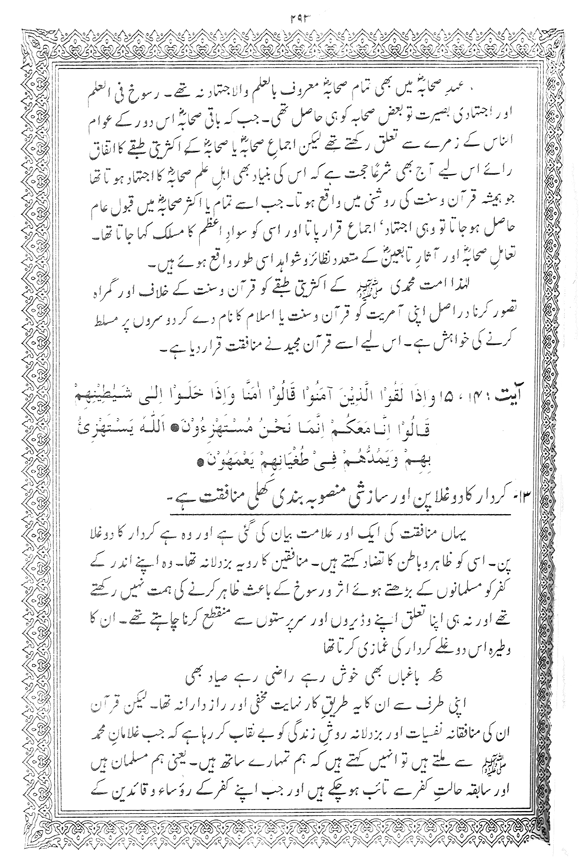 ۲۹۲
عہدِ صحابہؓ میں بھی تمام صحابہؓ معروف بالعلم والاجتہاد نہ تھے۔ رسوخ فی العلم
اور اجتہادی بصیرت تو بعض صحابہ کو ہی حاصل تھی۔ جب کہ باقی صحابہؓ اس دور کے عوام
الناس کے زمرے سے تعلق رکھتے تھے لیکن اجماعِ صحابہؓ یا صحابہؓ کے اکثریتی طبقے کا اتفاق
رائے اس لیے آج بھی شرعاً حجت ہے کہ اس کی بنیاد بھی اہلِ علم صحابہؓ کا اجتہاد ہوتا تھا
جو ہمیشہ قرآن و سنت کی روشنی میں واقع ہوتا۔ جب اسے تمام یا اکثر صحابہؓ میں قبول عام
حاصل ہو جاتا تو وہی اجتہاد، اجماع قرار پاتا اور اسی کو سوادِ اعظم کا مسلک کہا جاتا تھا۔
تعاملِ صحابہؓ اور آثارِ تابعینؓ کے متعدد نظائر و شواہد اسی طور واقع ہوئے ہیں۔
لہٰذا امت محمدی ﷺ کے اکثریتی طبقے کو قرآن و سنت کے خلاف اور گمراہ
تصور کرنا دراصل اپنی آمریت کو قرآن و سنت یا اسلام کا نام دے کر دوسروں پر مسلط
کرنے کی خواہش ہے۔ اس لیے اسے قرآن مجید نے منافقت قرار دیا ہے۔
آیت : ۱۴ ، ۱۵ وَاِذَا لَقُوْا الَّذِيْنَ آمَنُوْا قَالُوْا اٰمَنَّا وَاِذَا خَلَوْا اِلىٰ شَيٰطِيْنِهِمْ
قَالُوْا اِنَّا مَعَكُمْ اِنَّمَا نَحْنُ مُسْتَهْزِءُوْنَ ● اَللّٰهُ يَسْتَهْزِئُ
بِهِمْ وَيَمُدُّهُمْ فِىْ طُغْيَانِهِمْ يَعْمَهُوْنَ ●
۱۳۔ کردار کا دوغلا پن اور سازشی منصوبہ بندی کھلی منافقت ہے۔
یہاں منافقت کی ایک اور علامت بیان کی گئی ہے اور وہ ہے کردار کا دوغلا
پن۔ اسی کو ظاہر و باطن کا تضاد کہتے ہیں۔ منافقین کا رویہ بزدلانہ تھا۔ وہ اپنے اندر کے
کفر کو مسلمانوں کے بڑھتے ہوئے اثر و رسوخ کے باعث ظاہر کرنے کی ہمت نہیں رکھتے
تھے اور نہ ہی اپنا تعلق اپنے وڈیروں اور سرپرستوں سے منقطع کرنا چاہتے تھے۔ ان کا
وطیرہ اس دوغلے کردار کی غمازی کرتا تھا
ع باغباں بھی خوش رہے راضی رہے صیاد بھی
اپنی طرف سے ان کا یہ طریقِ کار نہایت مخفی اور رازدارانہ تھا۔ لیکن قرآن
ان کی منافقانہ نفسیات اور بزدلانہ روشِ زندگی کو بے نقاب کر رہا ہے کہ جب غلامانِ محمد
ﷺ سے ملتے ہیں تو انہیں کہتے ہیں کہ ہم تمہارے ساتھ ہیں۔ یعنی ہم مسلمان ہیں
اور سابقہ حالتِ کفر سے تائب ہو چکے ہیں اور جب اپنے کفر کے رؤساء و قائدین کے